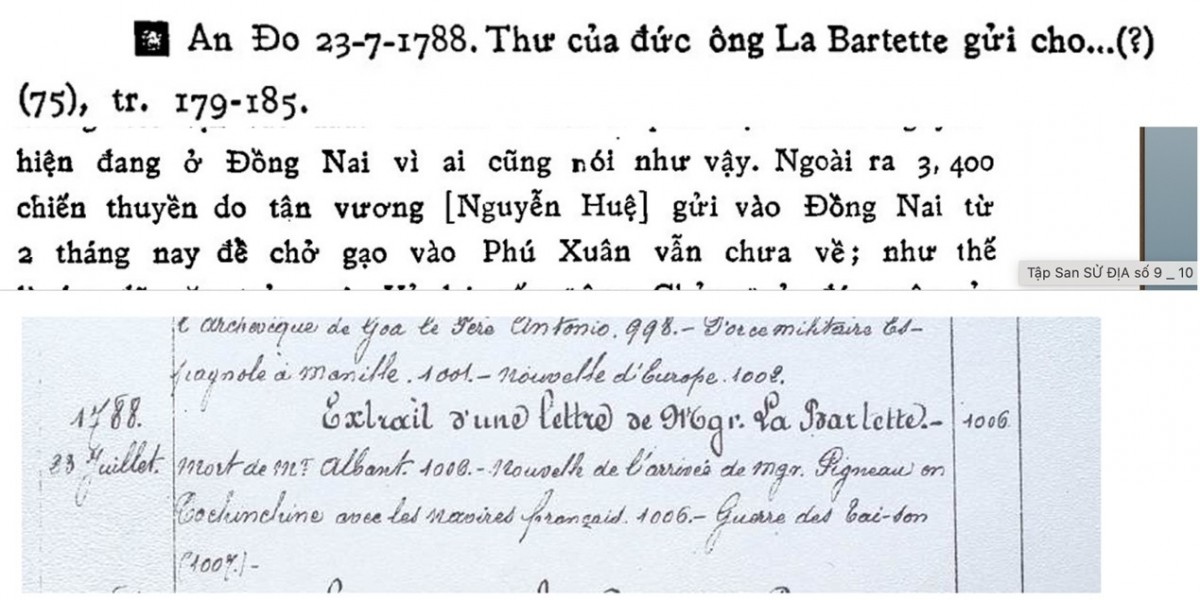 An Đo 23-7-1788. Thư của đức ông La Bartette gửi cho...(?)
(75), tr. 179-185.
hiện đang ở Đồng Nai vì ai cũng nói như vậy. Ngoài ra 3, 400
chiến thuyền do tận vương [Nguyễn Huệ] gửi vào Đồng Nai từ
2 tháng nay để chở gạo vào Phú Xuân vẫn chưa về; như thế
Tập San SỬ ĐỊA số 9 _ 10
l'archevêque de Goa le Père Antonio. 998.- Force militaire Es-
pagnole à Manille. 1001.- Nouvelle d'Europe. 1002.
1788. Extrait d'une lettre de Mgr. La Bartette.- 1006
23 Juillet. Mort de Mr Albant. 1006.- Nouvelle de l'arrivée de Mgr. Pigneau en
Cochinchine avec les navires français. 1006.- Guerre des Tai-son
(1007.)-